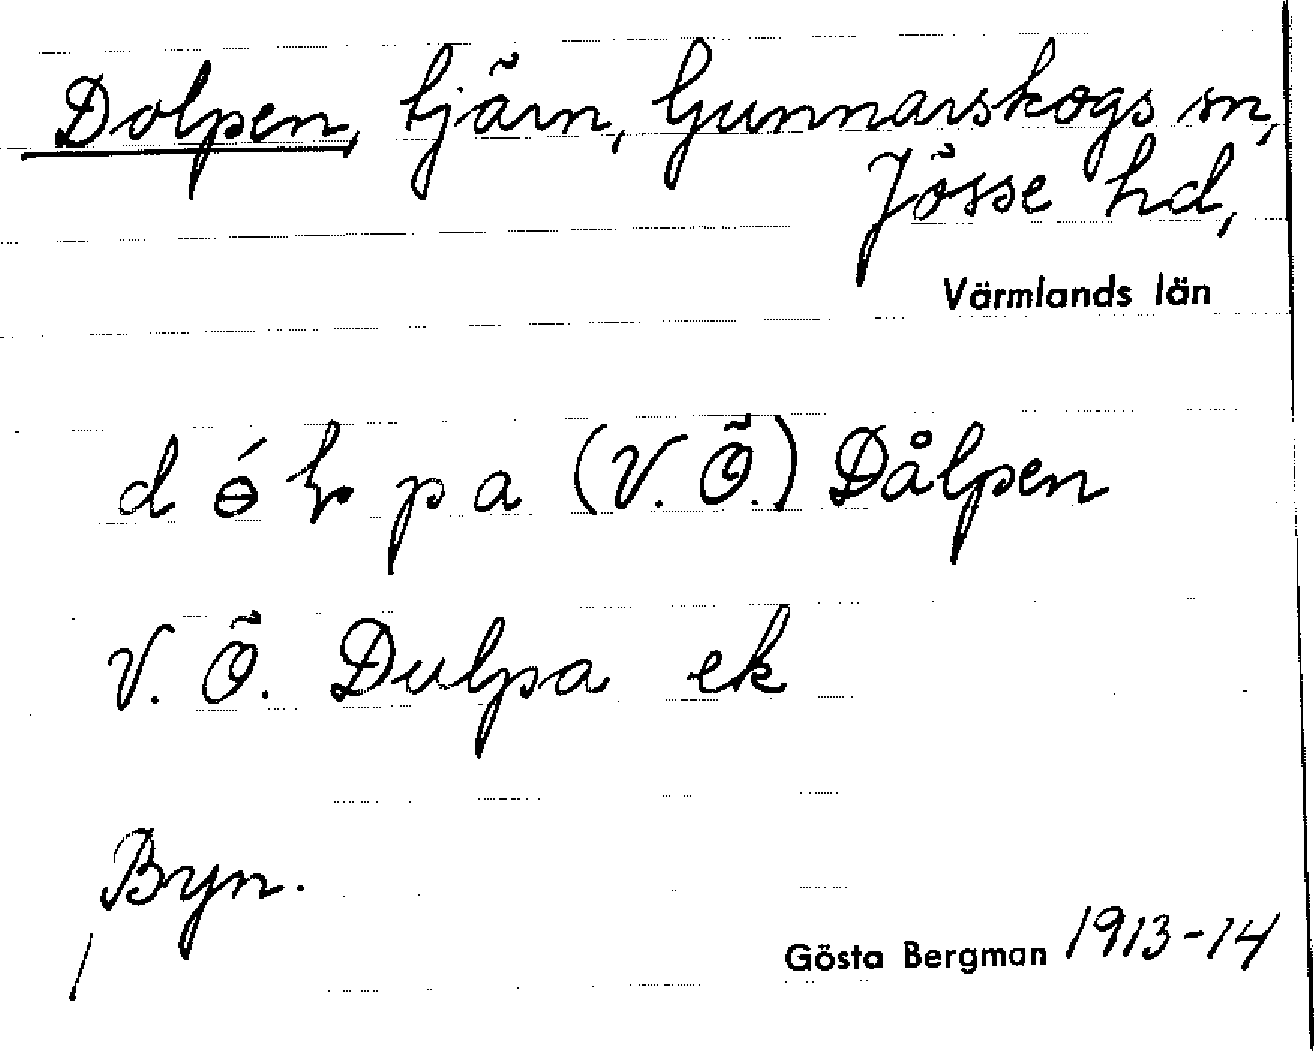 Dolpen, tjärn, Gunnarskogs sn,
Jösse hd,
Värmlands län
d ɵ́ p a (V. Ö.) Dålpen
V. Ö. Dulpa ek
Byn.
Gösta Bergman 1913-14